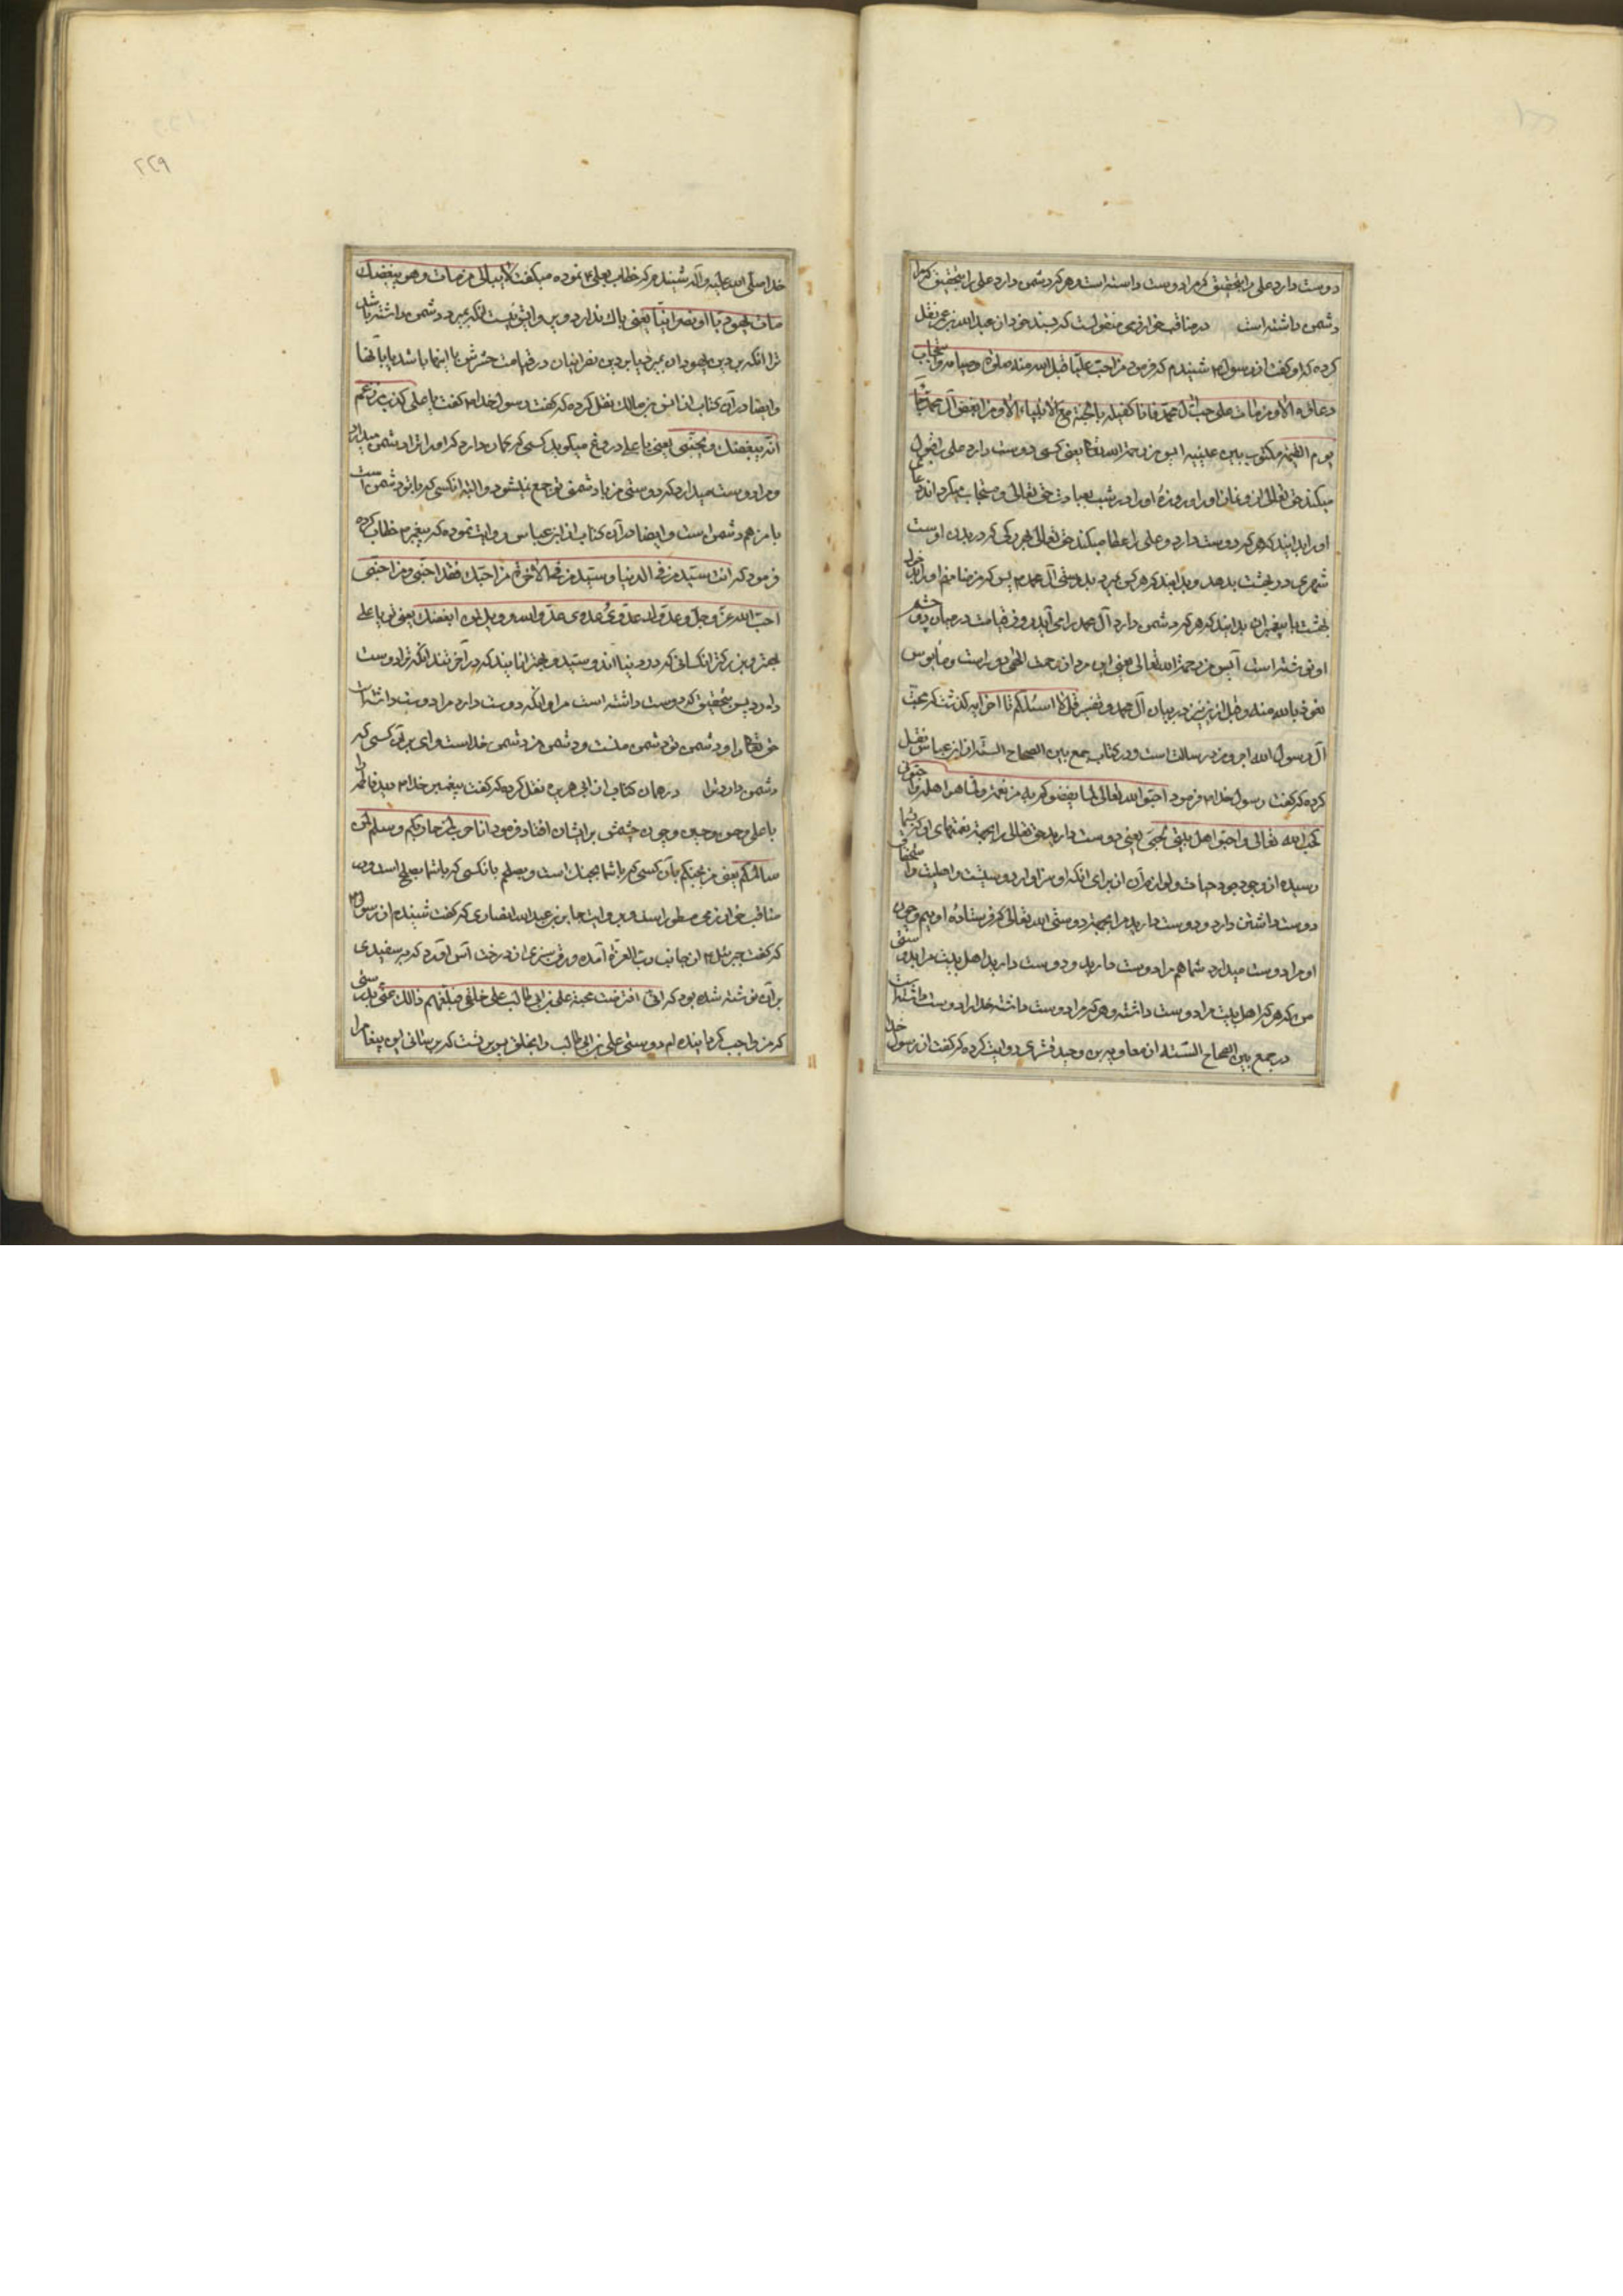 دوست دارد علی را بتحقیق که مرا دوست داشته است و هر که دشمن دارد علی را بتحقیق که مرا
دشمن داشته است در مناقب خوارزمی منقولست که بسند خود از عبدالله بن عمر نقل
کرده که او گفت از رسول شنیدم که فرمود من احب علیا قبل الله منه صلوته و صیامه و استجاب
دعاؤه الا و من مات علی حب آل محمد فانا کفیله بالجنة مع الانبیاء الا و من ابغض آل محمد جاء
یوم القیمة مکتوب بین عینیه آیس من رحمة الله یعنی کسی دوست دارد علی را قبول
میکند حق تعالی از او نماز او را و روزه او را و در شب عبادت حق تعالی و مستجاب میگرداند دعای
او را بدانید که هر که دوست دارد علی را عطا میکند حق تعالی بهر رکی که در بدن اوست
شهری در بهشت بدهد و بدانید که هر کس بمیرد بدوستی آل محمد پس که من ضامنم او را بدخول
بهشت با پیغمبران بدانید که هر که دشمن دارد آل محمد را می آید روز قیامت در میان دو چشم
او نوشته است آیس من رحمة الله تعالی یعنی این مرد از رحمت الهی دور است و مأیوس
نعوذ بالله منه و قبل ازین نیز در بیان آل محمد و تفسیر قل لا اسئلکم تا آخر آیه گذشت که محبت
آل رسول الله اجر و مزد رسالت است و در کتاب جمع بین الصحاح الستة از ابن عباس نقل
کرده که گفت رسول خدا فرمود احبوا الله تعالی لما یغذوکم به من نعمة و لما هو اهله و احبونی
لحب الله تعالی و احبوا اهل بیتی لحبی یعنی دوست دارید حق تعالی را بجهة نعمتهای او که بشما
رسیده از وجود جود حیات و لوازم آن از برای آنکه او سزاوار دوستیست و اهلیت و استحقاق
دوست داشتن دارد و دوست دارید مرا بجهة دوستی الله تعالی که فرستاده اویم و چون
او مرا دوست میدارد شما هم مرا دوست دارید و دوست دارید اهل بیت مرا بدوستی
من که هر که اهل بیت مرا دوست داشته و هر که مرا دوست داشته خدا را دوست داشته است
در جمع بین الصحاح الستة از معاویه بن وحید قشری روایت کرده که گفت از رسول خدا
۲۲۹
خدا صلی الله علیه و آله شنیدم که خطاب بعلی نموده میگفت لا یبالی من مات و هو یبغضک
مات یهودیا او نصرانیا یعنی باک ندارد و پروایش نیست آنکه بمیرد و دشمن داشته باشد
ترا آنکه بر دین یهودان بمیرد یا بر دین نصرانیان در قیامت حشرش با اینها باشد یا با آنها
و ایضا در آن کتاب از انس بن مالک نقل کرده که گفت رسول خدا گفت یا علی کذب من زعم
انه یبغضک و یحبنی یعنی یا علی دروغ میگوید کسی که گمان دارد که او ترا دشمن میدارد
و مرا دوست میدارد که دوستی من با دشمنی تو جمع نمیشود و البته آنکسی که با تو دشمن است
با من هم دشمن است و ایضا در آن کتاب از ابن عباس روایت نموده که پیغمبر خطاب کرده
فرمود که انت سید من فی الدنیا و سید من فی الآخرة من احبک فقد احبنی و من احبنی
احب الله عز و جل و عدوک عدوی و عدوی عدو الله و ویل لمن ابغضک یعنی تو یا علی
بهتر و بزرگتر آنکسانی که در دنیا اند و سید و بهتر آنهایند که در آخرتند آنکه ترا دوست
دارد پس بتحقیق که دوست داشته است مرا و آنکه دوست دارد مرا دوست داشته است
حق تعالی را و دشمن تو دشمن منست و دشمن من دشمن خداست و وای بر آن کسی که
دشمن دارد ترا در همان کتاب از ابی هریره نقل کرده که گفت پیغمبر خدا دید فاطمه را
با علی و حسن و حسین و چون چشمش بر ایشان افتاد فرمود انا حرب لمن حاربکم و سلم لمن
سالمکم یعنی من بجنگم با آن کسی که با شما بجنک است و بصلحم با آنکسی که با شما بصلح است و در
مناقب خوارزمی مسطور است بروایت جابر بن عبدالله انصاری که گفت شنیدم از رسول
که گفت جبرئیل از جانب رب العزة آمده ورق سبزی از درخت آس آورد که بسفیدی
بر آن نوشته شده بود که انی افترضت محبة علی بن ابی طالب علی خلقی فبلغهم ذلک عنی بدرستی
که من واجب گردانیده ام دوستی علی بن ابی طالب را بخلق پس بر تست که برسانی این پیغام را